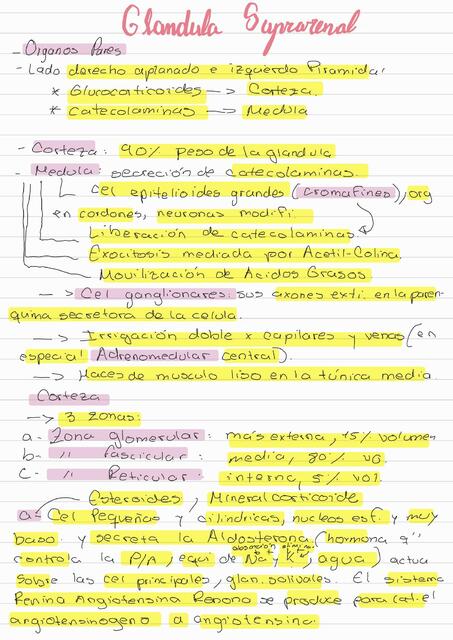 Glandula Suprarenal
- Organos Pares
- Lado derecho aplanado e izquierdo Piramidal
* Glucocorticoides --> Corteza.
* catecolaminas --> Medula
- Corteza: 90% peso de la glandula
- Medula: secreción de catecolaminas.
cel epitelioides grandes (cromafines), org
en cordones, neuronas modifi.
Liberación de catecolaminas.
Exocitosis mediada por Acetil-Colina.
Movilización de Acidos Grasos
--> Cel ganglionares: sus axones exti. en la paren-
quina secretora de la celula.
--> Irrigación doble x capilares y venas (en
especial Adrenomedular central).
--> Haces de musculo liso en la túnica media.
Corteza
--> 3 zonas:
a- Zona glomerular: más externa, 15% volumen
b- " fascicular: media, 80% vo.
C- " Reticular: interna, 5% vol.
Esteroides / Mineralcorticoide
a- Cel Pequeñas y cilindricas, nucleos esf. y muy
baso. y secreta la Aldosterona (hormona q"
controla la P/A, equi de Na+ y K+, agua) actua
absorción
sobre las cel principales, glan. salivales. El sistema
Renina Angiotensina Renono se produce para cat. el
angiotensinogeno a angiotensina.